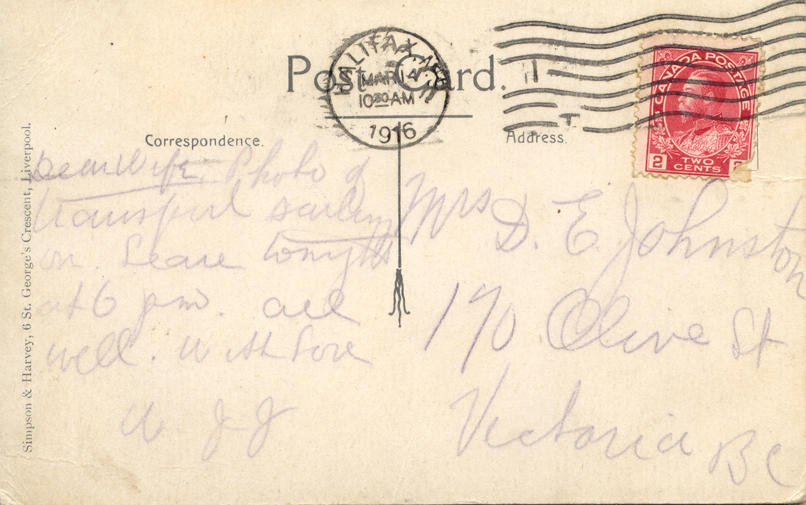 Post Card.
HALIFAX, N.S.
MAR 14
10 30 AM
1916
CANADA POSTAGE
2 TWO CENTS
Correspondence.
Address.
Dear Wife. Photo of
transport sailing
on. Leave tonight
at 6 pm. all
well. With Love
Mrs D. E. Johnston
170 Olive St
Victoria BC
Simpson & Harvey, 6 St. George's Crescent, Liverpool.